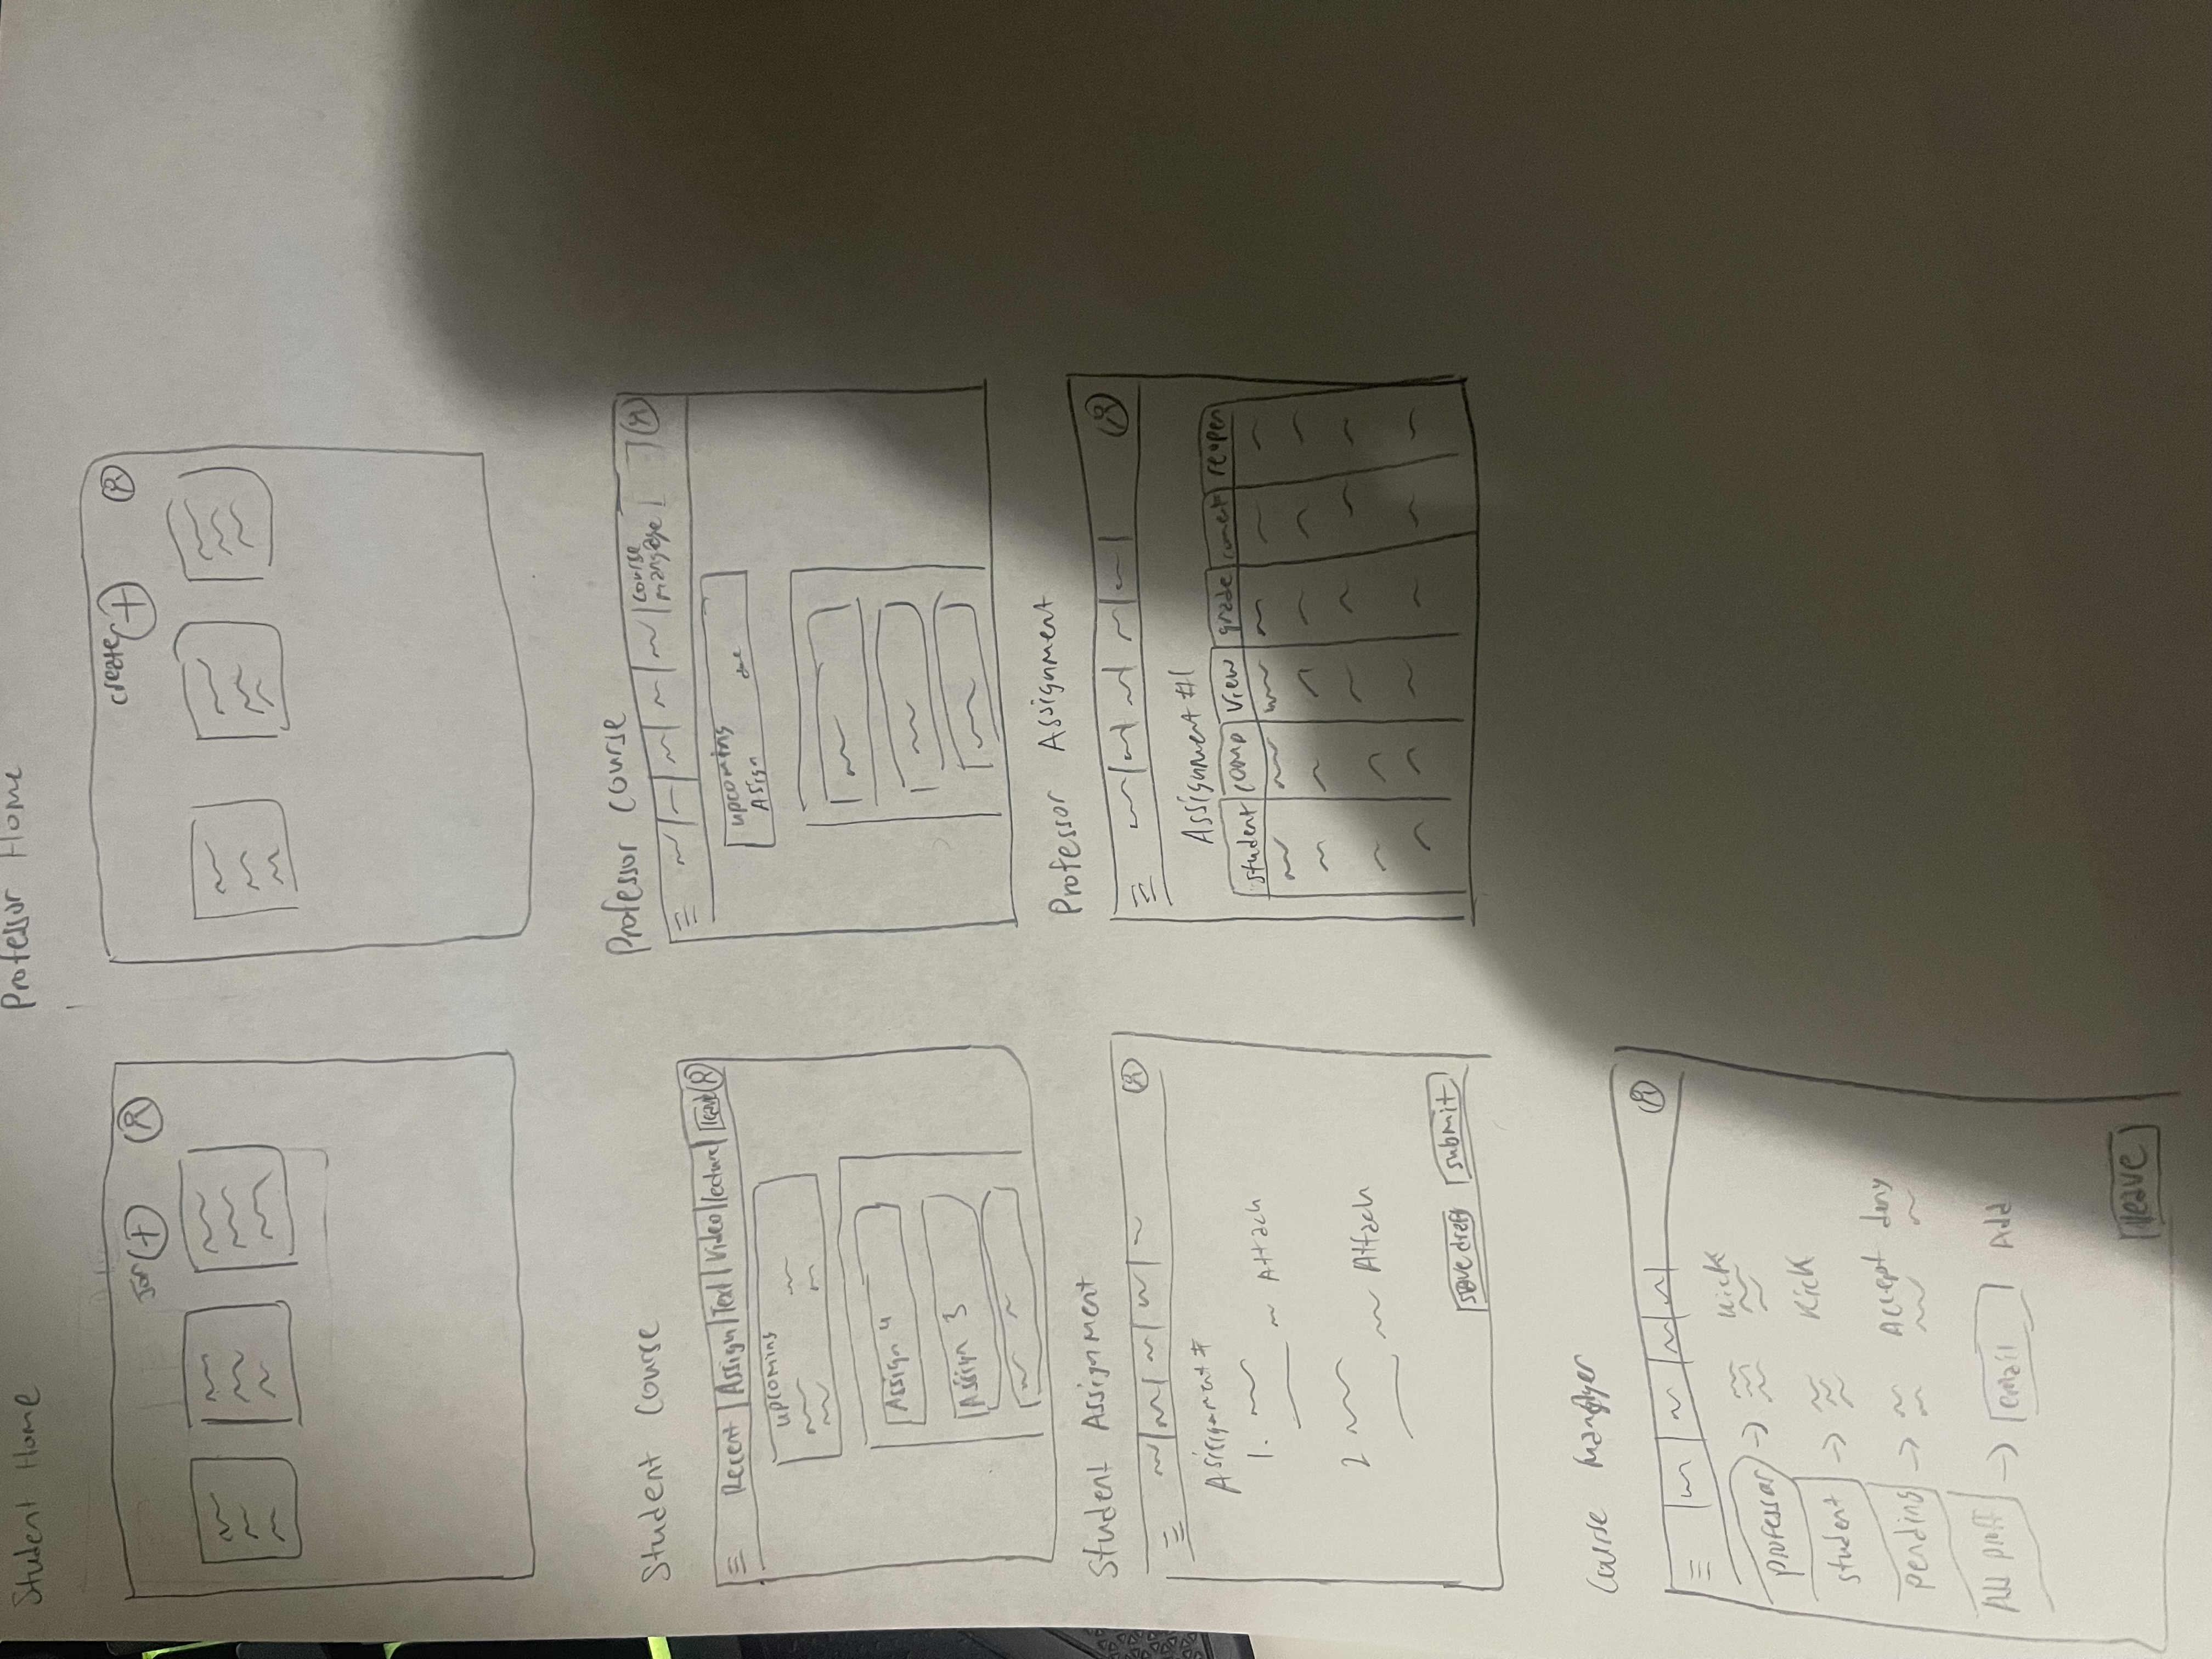 Student Home
Professor Home
Join
create
Student Course
Recent | Assign | Text | Video | lecture | leave
upcoming
Assign 4
Assign 3
Professor course
course
manage
upcoming
Asign due
Student Assignment
Assignment #
1.
Attach
2
Attach
save draft submit
Professor Assignment
Assignment #1
student comp view grade coment reopen
Course
Kick
professor
Kick
student
Accept deny
pending
Add proff email Add
leave